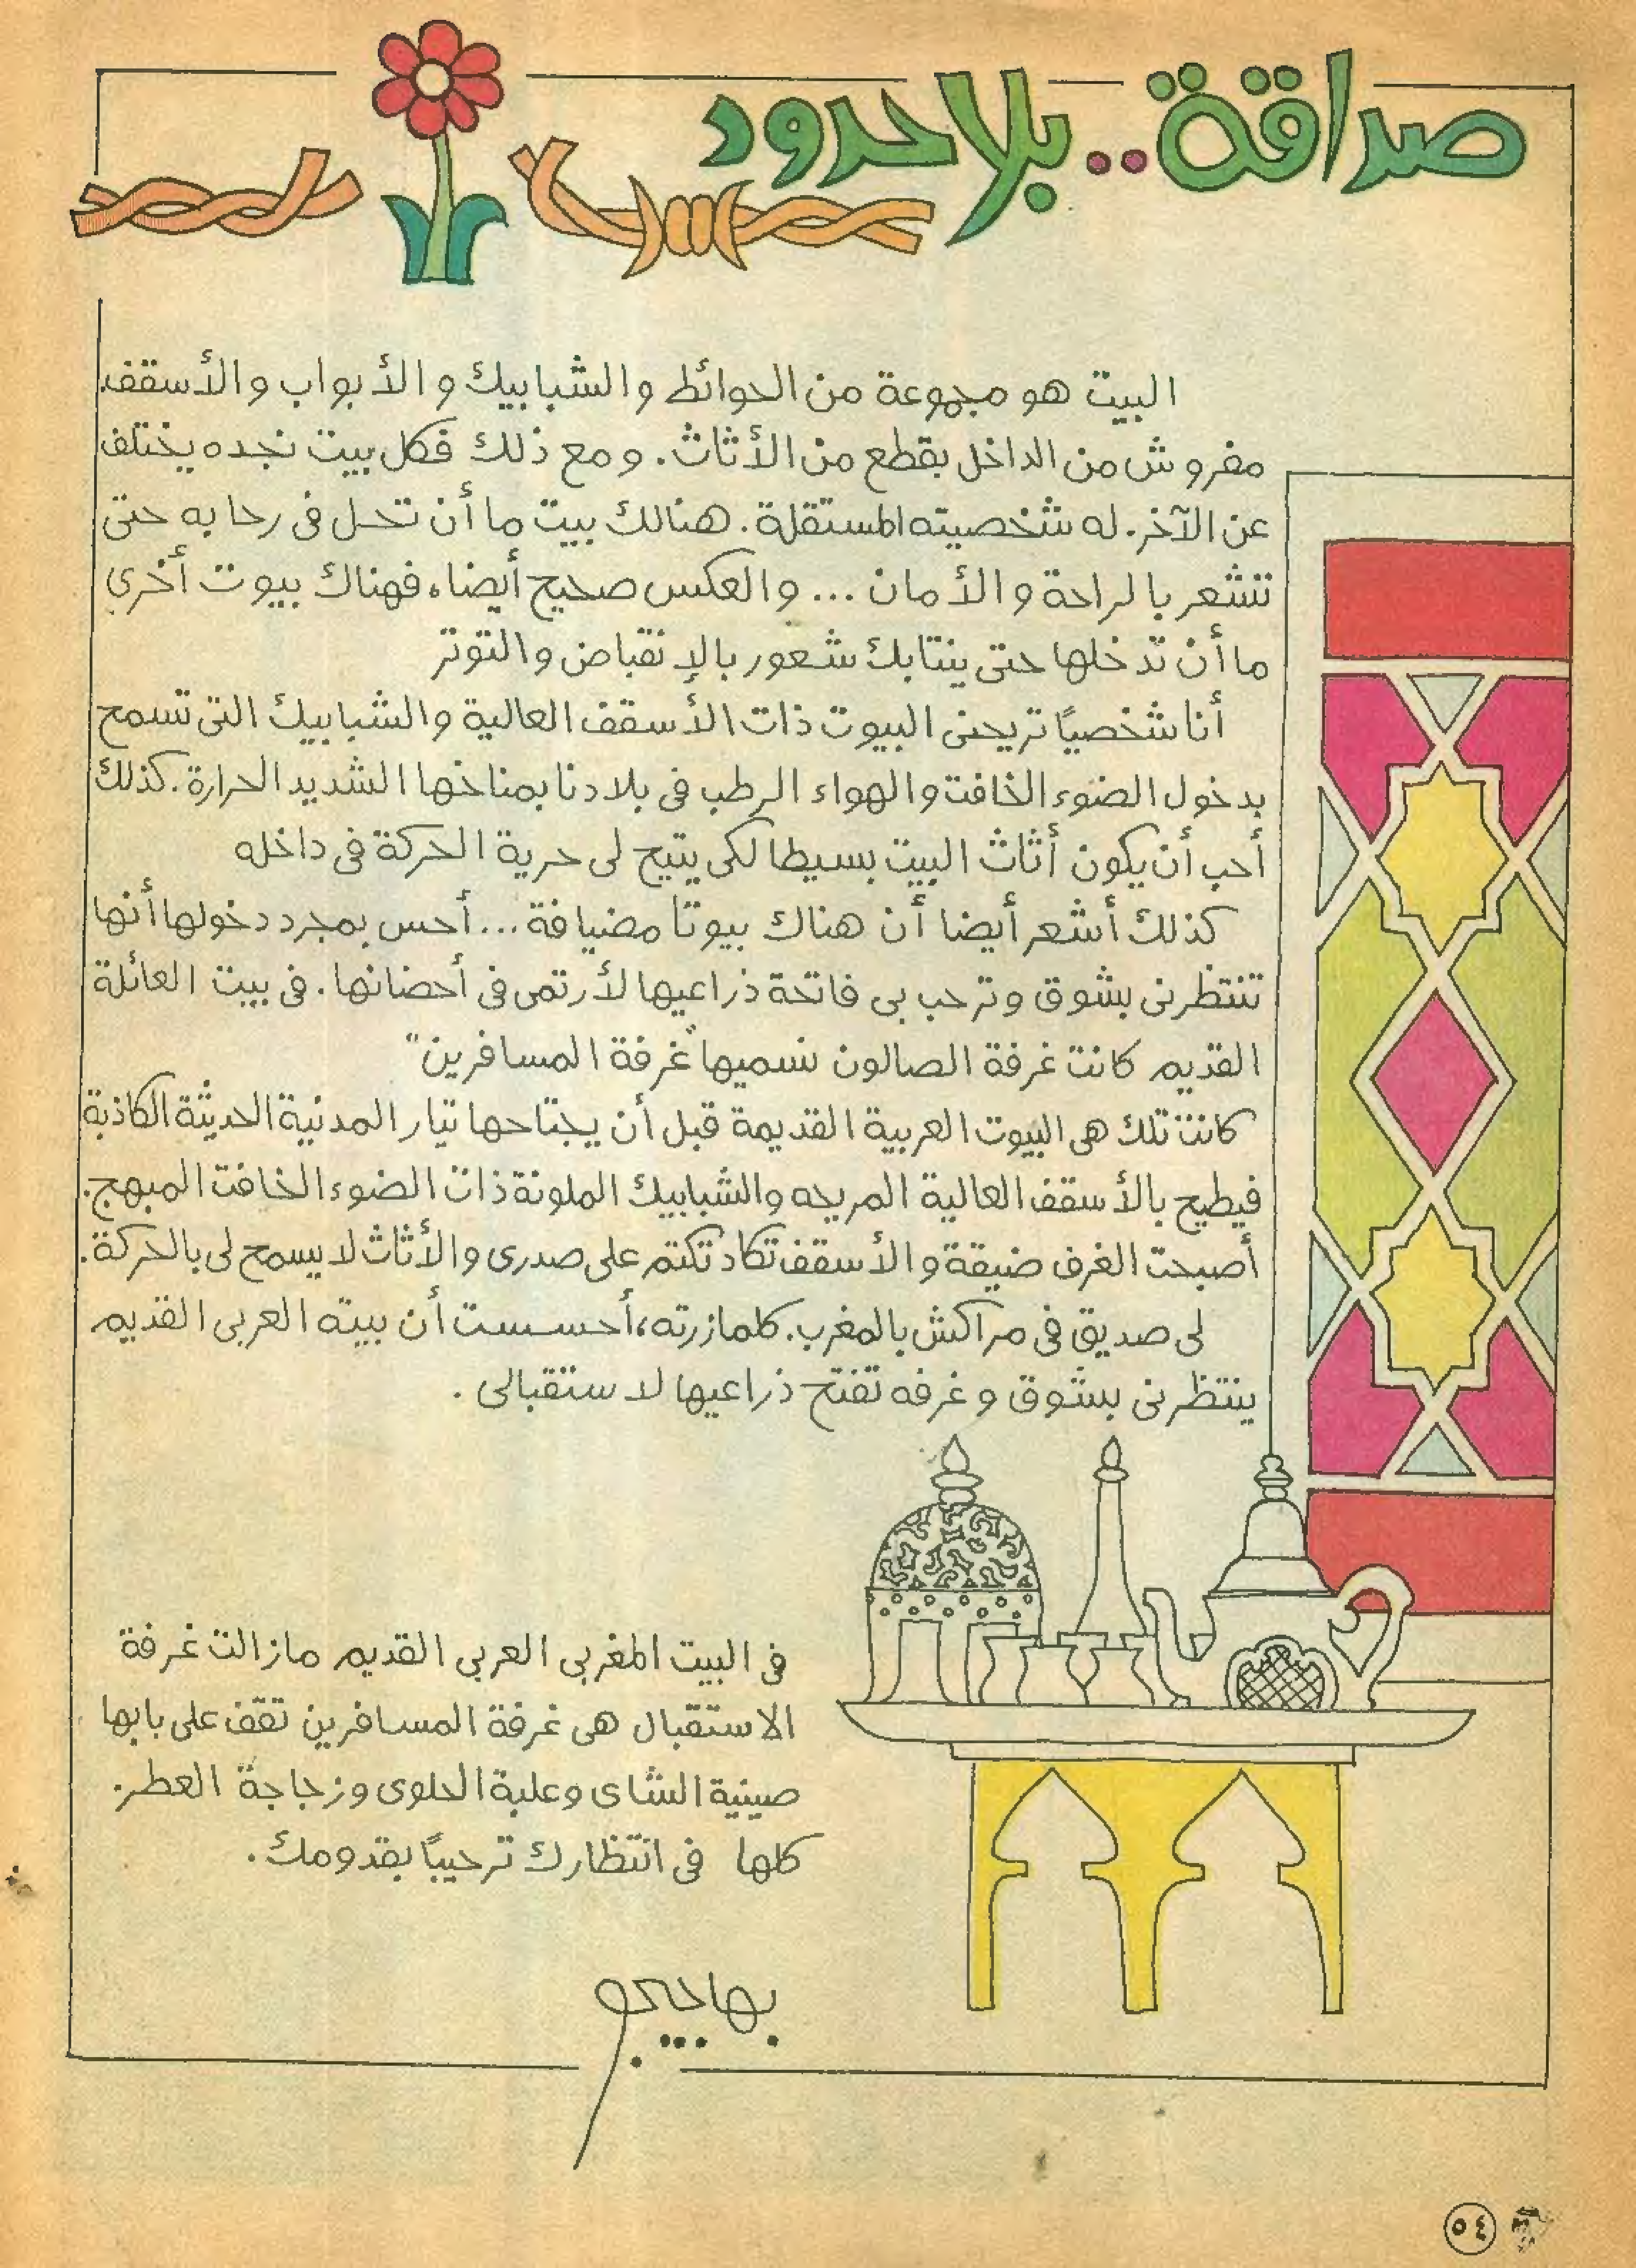 صداقة.. بلا حدود
البيت هو مجموعة من الحوائط والشبابيك والأبواب والأسقف.
مفروش من الداخل بقطع من الأثاث. ومع ذلك فكل بيت نجده يختلف
عن الآخر. له شخصيته المستقلة. هنالك بيت ما أن تحل فى رحابه حتى
تشعر بالراحة والأمان ... والعكس صحيح أيضا، فهناك بيوت أخري
ما أن تدخلها حتى ينتابك شعور بالإنقباض والتوتر
أنا شخصيًا تريحنى البيوت ذات الأسقف العالية والشبابيك التى تسمح
بدخول الضوء الخافت والهواء الرطب فى بلادنا بمناخها الشديد الحرارة. كذلك
أحب أن يكون أثاث البيت بسيطا لكى يتيح لى حرية الحركة فى داخله
كذلك أشعر أيضا أن هناك بيوتا مضيافة... أحس بمجرد دخولها أنها
تنتظرنى بشوق وترحب بى فاتحة ذراعيها لأرتمى فى أحضانها. فى بيت العائلة
القديم كانت غرفة الصالون نسميها "غرفة المسافرين"
كانت تلك هى البيوت العربية القديمة قبل أن يجتاحها تيار المدنية الحديثة الكاذبة
فيطيح بالأسقف العالية المريحه والشبابيك الملونة ذات الضوء الخافت المبهج.
أصبحت الغرف ضيقة والأسقف تكاد تكتم على صدرى والأثاث لا يسمح لى بالحركة.
لى صديق فى مراكش بالمغرب. كلما زرته، أحسست أن بيته العربى القديم
ينتظرنى بشوق وغرفه تفتح ذراعيها لاستقبالى.
فى البيت المغربى العربى القديم مازالت غرفة
الاستقبال هى غرفة المسافرين تقف على بابها
صينية الشاى وعلبة الحلوى وزجاجة العطر.
كلها فى انتظارك ترحيبًا بقدومك.
بهاجيجو
٥٤